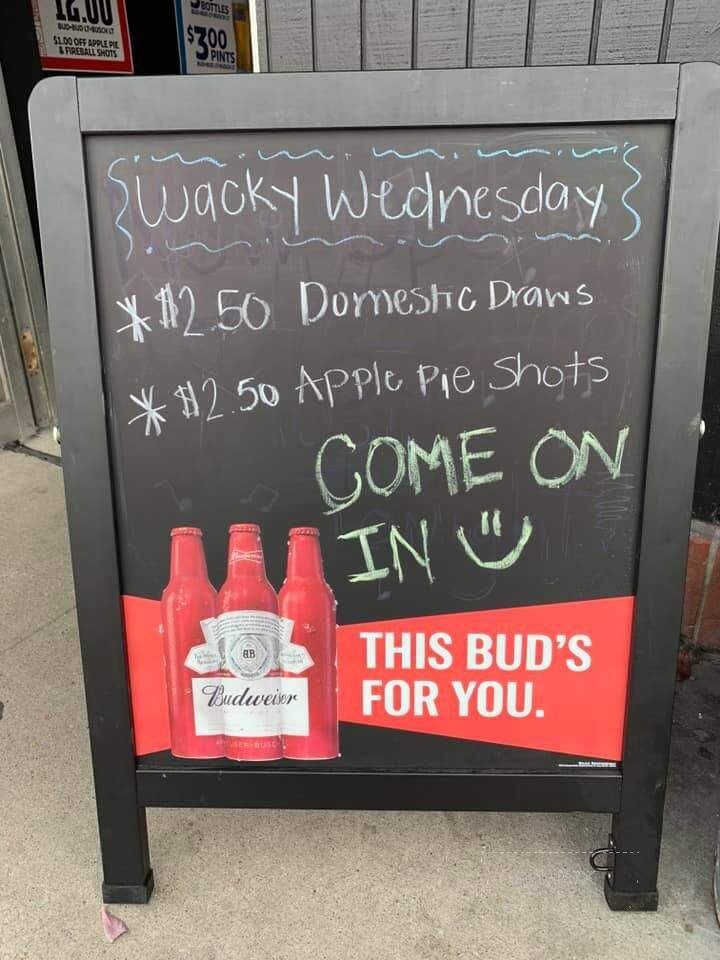 12.00
BUD-BUD LT-BUSCH LT
$1.00 OFF APPLE PIE
& FIREBALL SHOTS
BOTTLES
$3.00
PINTS
Wacky Wednesday
* $2.50 Domestic Draws
* $2.50 Apple Pie Shots
COME ON
IN
Budweiser
THIS BUD'S
FOR YOU.